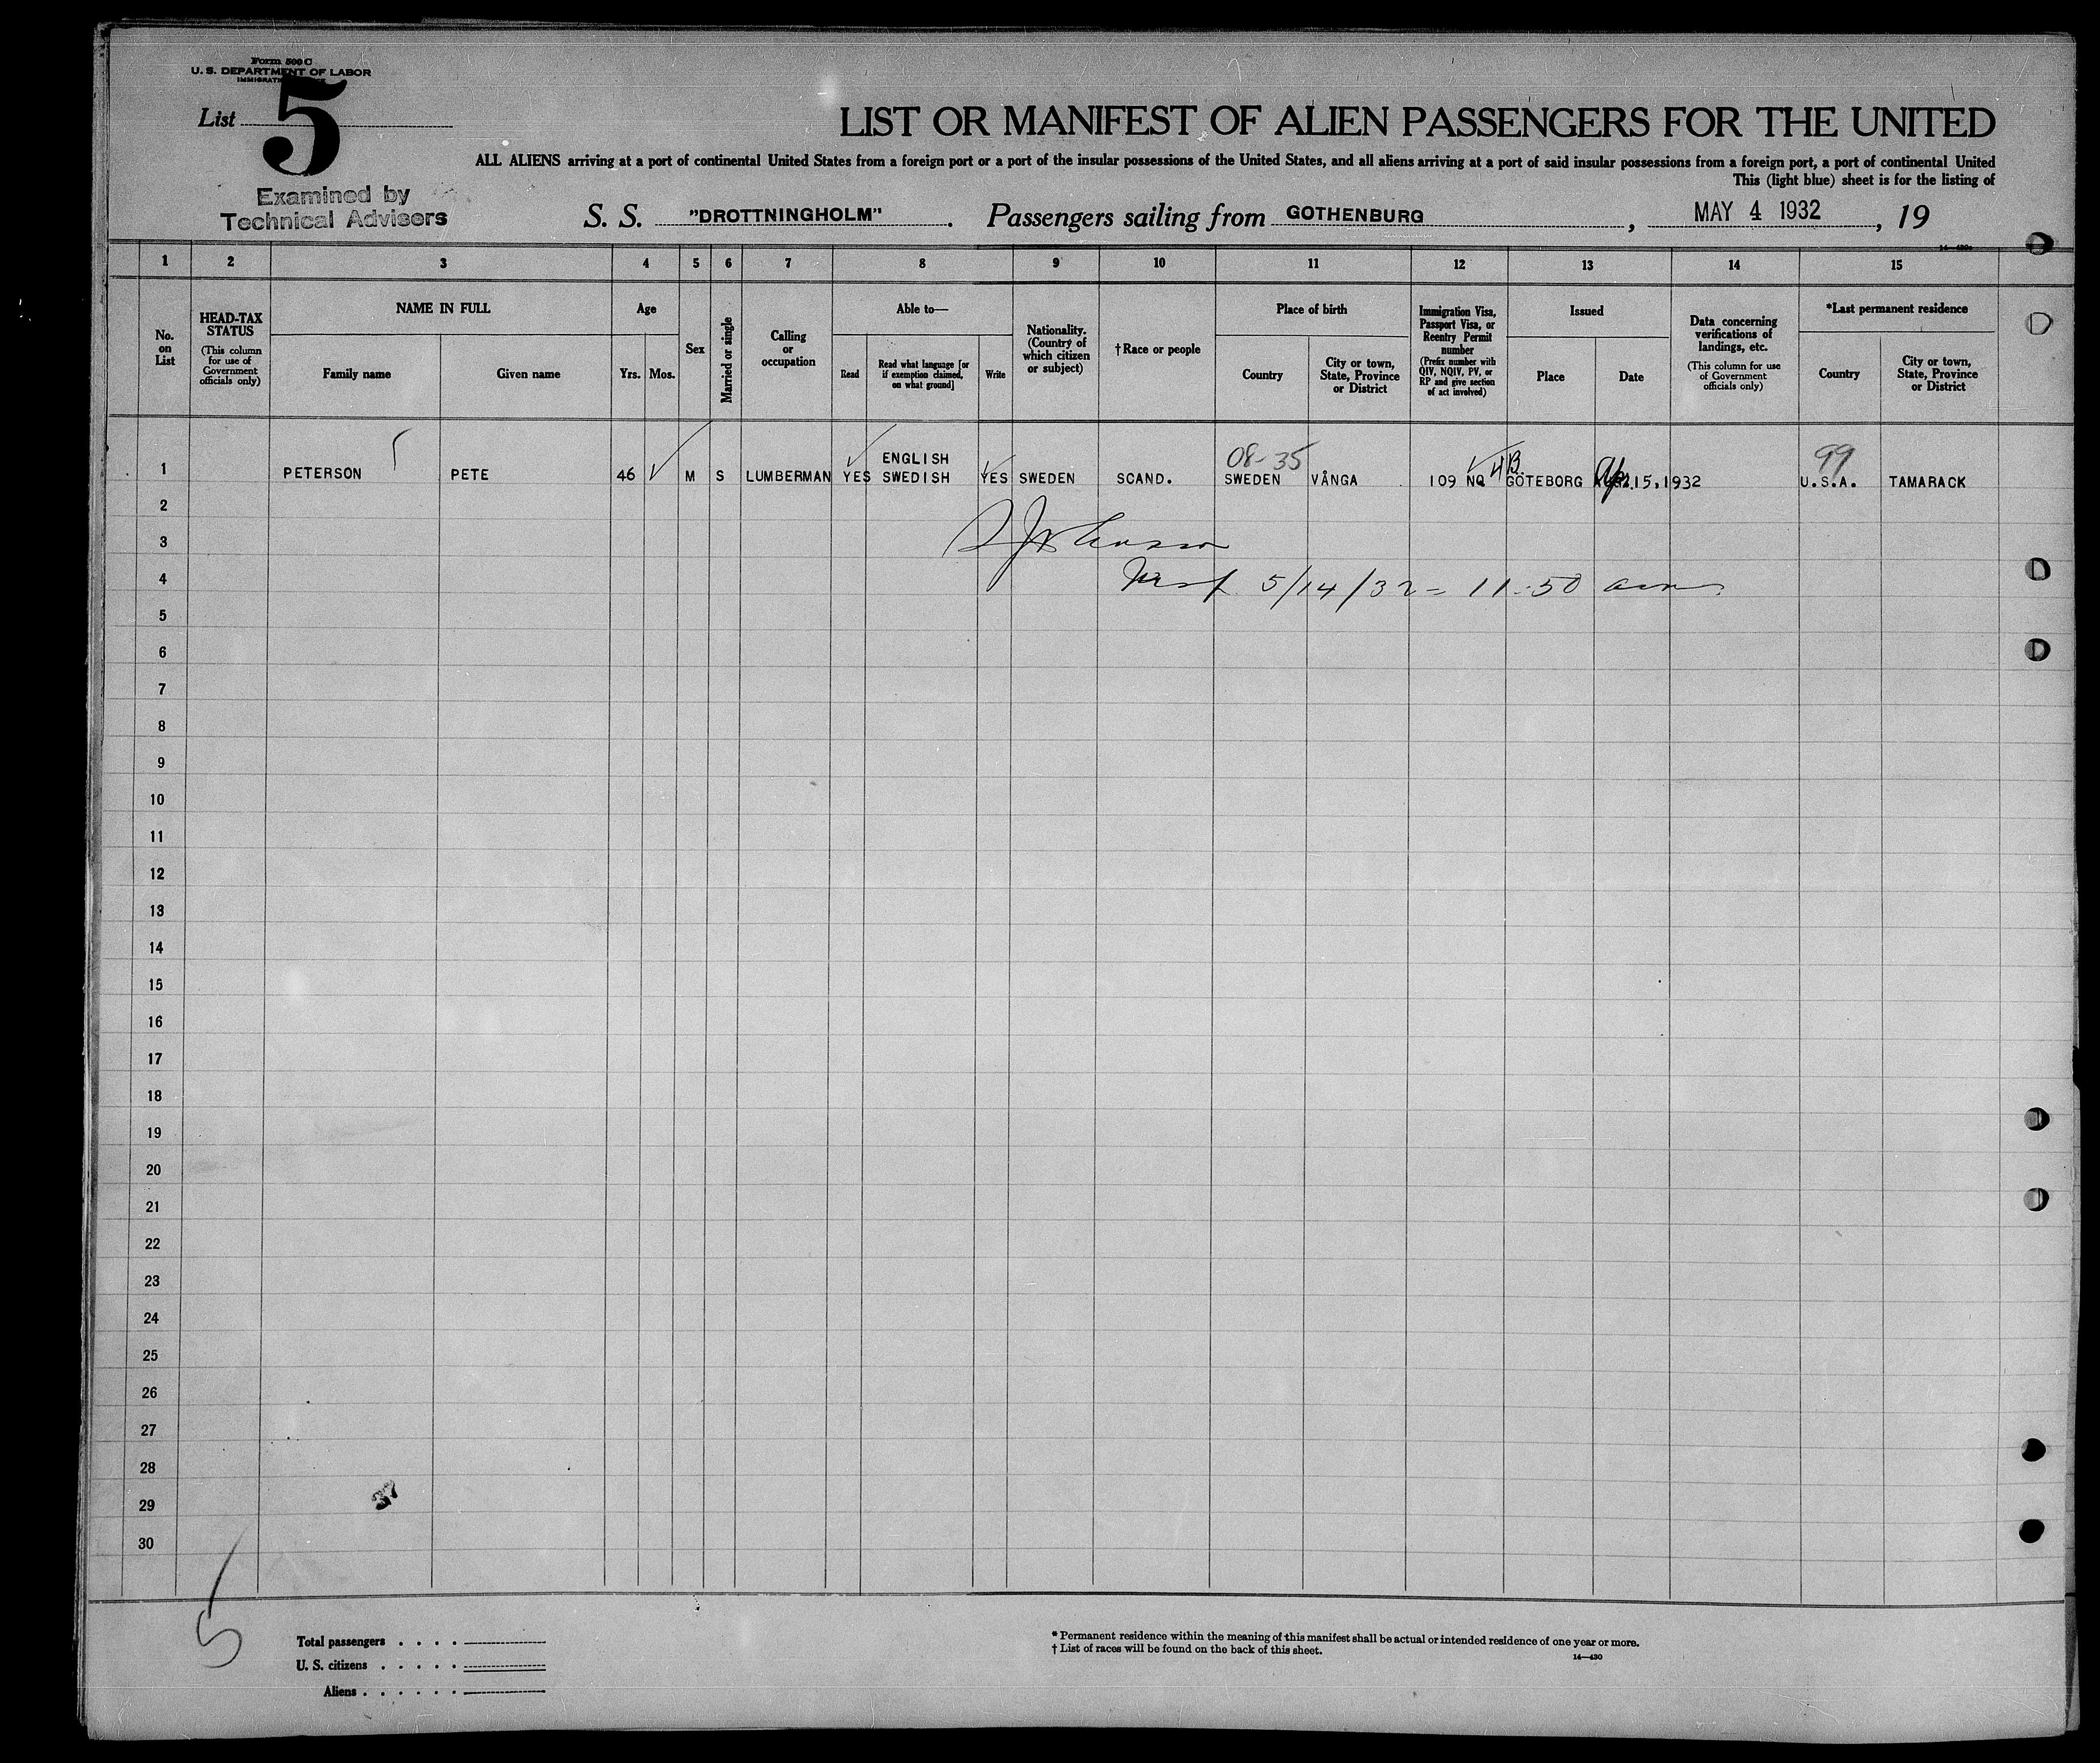 Form 500 C
U. S. DEPARTMENT OF LABOR
List 5
LIST OR MANIFEST OF ALIEN PASSENGERS FOR THE UNITED
ALL ALIENS arriving at a port of continental United States from a foreign port or a port of the insular possessions of the United States, and all aliens arriving at a port of said insular possessions from a foreign port, a port of continental United
This (light blue) sheet is for the listing of
Examined by
Technical Advisers
S. S. "DROTTNINGHOLM". Passengers sailing from GOTHENBURG, MAY 4 1932, 19
14—430
1 2 3 4 5 6 7 8 9 10 11 12 13 14 15
No. on List
HEAD-TAX STATUS (This column for use of Government officials only)
NAME IN FULL
Family name
Given name
Age
Yrs. Mos.
Sex
Married or single
Calling or occupation
Able to—
Read
Read what language [or if exemption claimed, on what ground]
Write
Nationality. (Country of which citizen or subject)
†Race or people
Place of birth
Country
City or town, State, Province or District
Immigration Visa, Passport Visa, or Reentry Permit number (Prefix number with QIV, NQIV, PV, or RP and give section of act involved)
Issued
Place
Date
Data concerning verifications of landings, etc. (This column for use of Government officials only)
*Last permanent residence
Country
City or town, State, Province or District
08-35 4B. 99
1 PETERSON PETE 46 M S LUMBERMAN YES ENGLISH SWEDISH YES SWEDEN SCAND. SWEDEN VÅNGA 109 NQ GÖTEBORG Apr. 15, 1932 U.S.A. TAMARACK
2
3
4 5/14/32 = 11-50 am
5
6
7
8
9
10
11
12
13
14
15
16
17
18
19
20
21
22
23
24
25
26
27
28
29
37
30
5
Total passengers
U. S. citizens
Aliens
* Permanent residence within the meaning of this manifest shall be actual or intended residence of one year or more.
† List of races will be found on the back of this sheet.
14—430